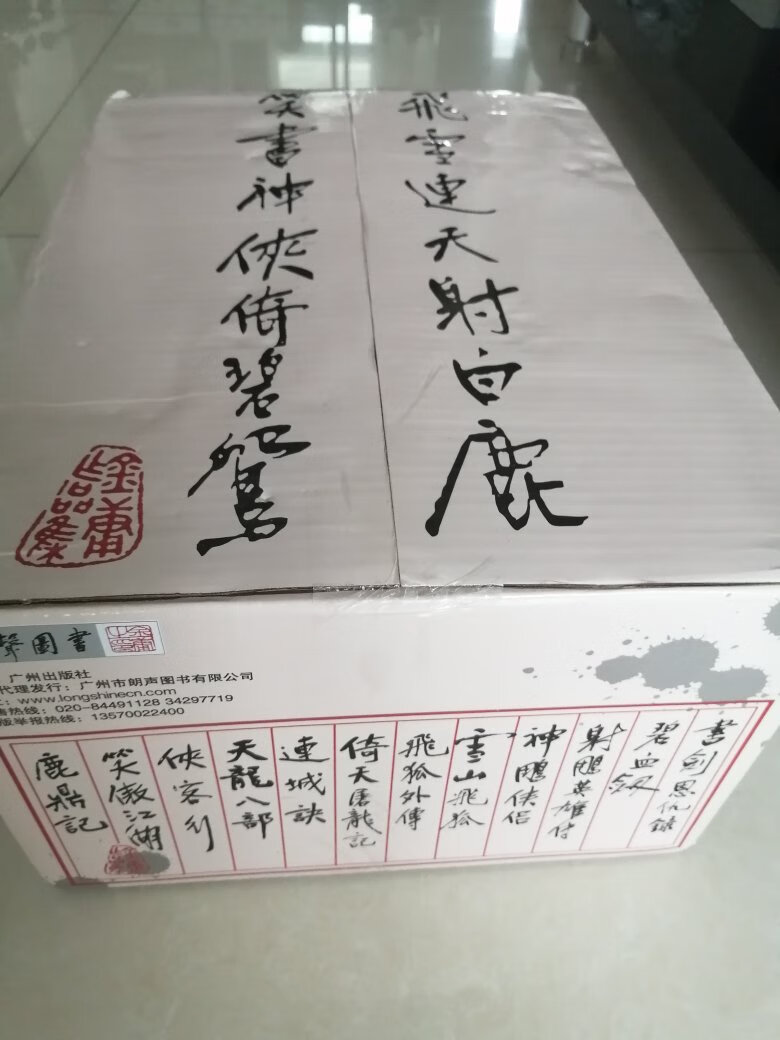 飛雪連天射白鹿
笑書神俠倚碧鴛
金庸作品集
聲圖書
广州出版社
代理发行：广州市朗声图书有限公司
www.longshinecn.com
热线：020-84491128 34297719
版举报热线：13570022400
書劍恩仇錄
碧血劍
射鵰英雄傳
神鵰俠侶
雪山飛狐
飛狐外傳
倚天屠龍記
連城訣
天龍八部
俠客行
笑傲江湖
鹿鼎記